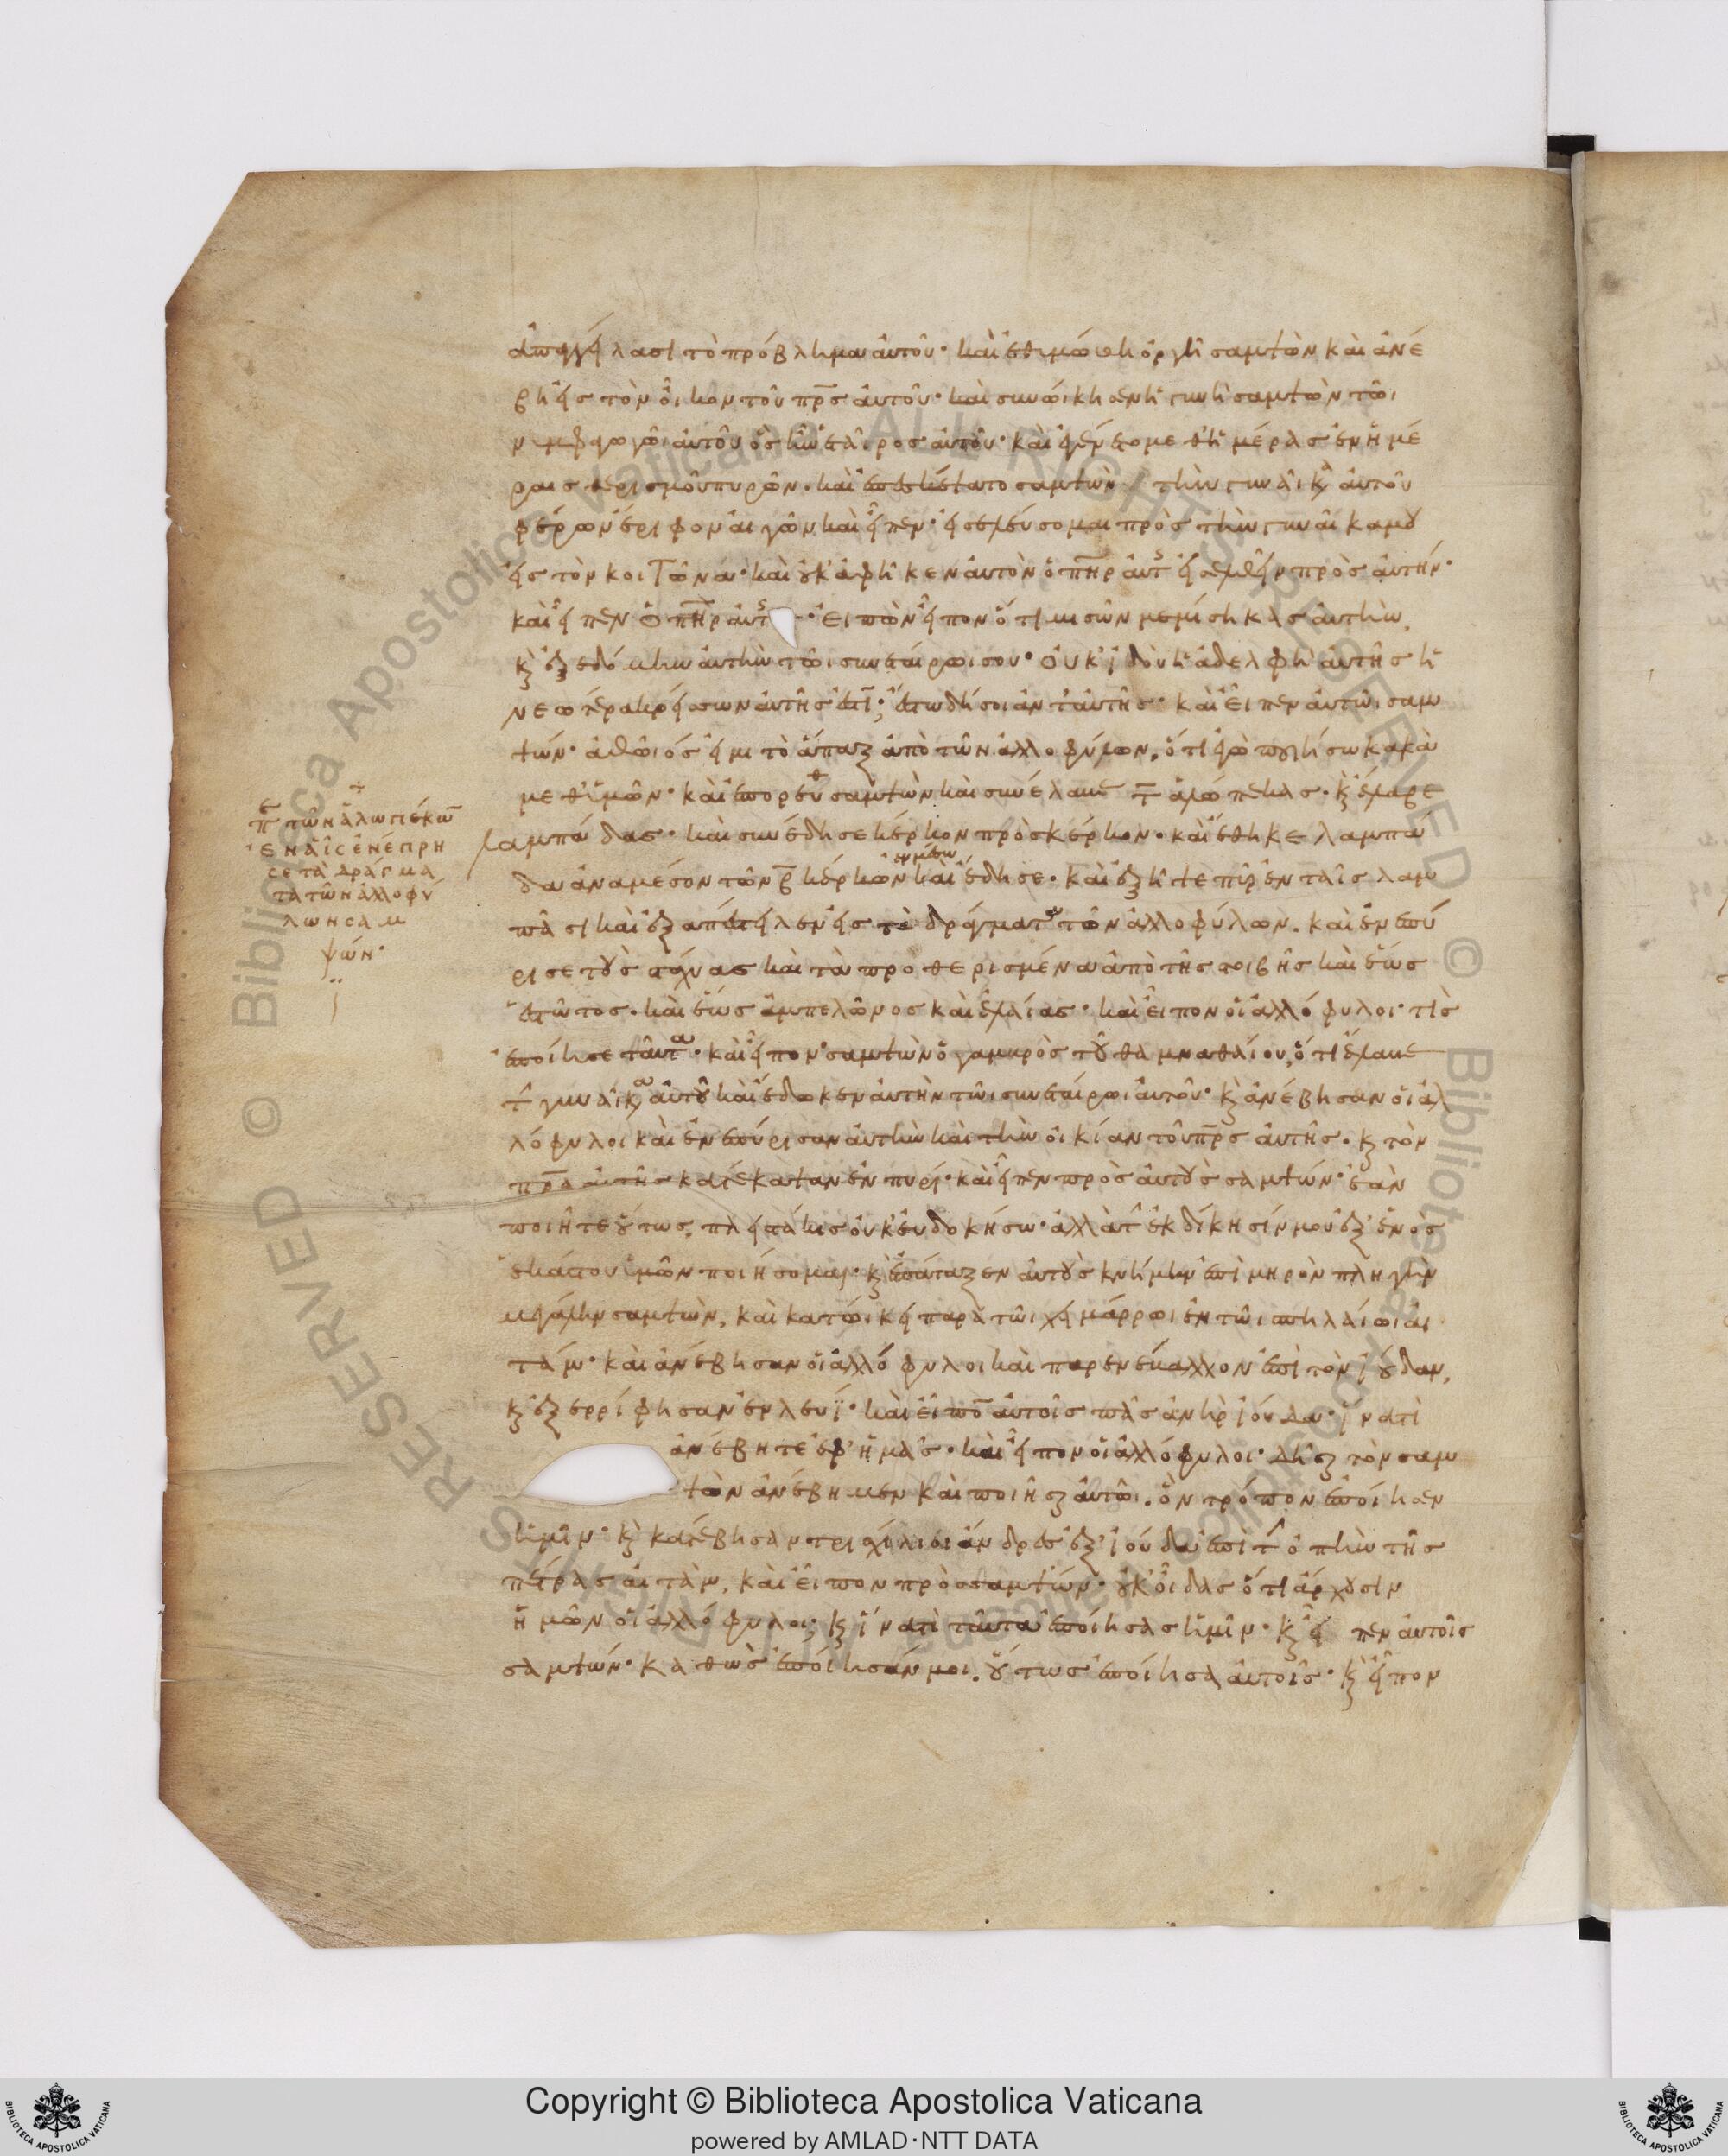 ἀπαγγείλασι τὸ πρόβλημα αὐτοῦ· καὶ ἐθυμώθη ὀργῆ σαμψὼν καὶ ἀνέ
βη εἰς τὸν οἶκον τοῦ πρς αὐτοῦ· καὶ συνώικησεν ἡ γυνὴ σαμψὼν τῶι
νυμφαγωγῶι αὐτοῦ ὃς ἦν ἑταῖρος αὐτοῦ· καὶ ἐγένετο μεθ' ἡμέρας ἐν ἡμέ
ραις θερισμοῦ πυρῶν· καὶ ἐπεσκέψατο σαμψὼν τὴν γυναῖκα αὐτοῦ
φέρων ἔριφον αἰγῶν καὶ εἶπεν· εἰσελεύσομαι πρὸς τὴν γυναῖκα μου
εἰς τὸν κοιτῶνα· καὶ οὐκ ἀφῆκεν αὐτὸν ὁ πηρ αὐτῆς εἰσελθεῖν πρὸς αὐτήν·
καὶ εἶπεν ὁ πηρ αὐτῆς· εἰπὼν εἶπον ὅτι μισῶν μεμίσηκας αὐτὴν.
καὶ ἔδωκα αὐτὴν τῶι συνεταίρωι σου· οὐκ ἰδοὺ ἡ ἀδελφὴ αὐτῆς ἡ
νεωτέρα κρείσσων αὐτῆς ἐστί; ἔστω δή σοι ἀντ' αὐτῆς· καὶ εἶπεν αὐτῶι σαμ
ψών· ἀθῶιός εἰμι τὸ ἅπαξ ἀπὸ τῶν ἀλλοφύλων, ὅτι ἐγὼ ποιήσω κακὰ
μεθ' ὑμῶν· καὶ ἐπορεύθ σαμψὼν καὶ συνέλαβε τ ἀλώπεκας· καὶ ἔλαβε
λαμπάδας· καὶ συνέδησε κέρκον πρὸς κέρκον· καὶ ἔθηκε λαμπά
δα ἀναμέσον τῶν β κέρκων ἐν μέσω καὶ ἔδησε· καὶ ἐξῆψε πῦρ ἐν ταῖς λαμ
πάσι καὶ ἐξαπέστειλεν εἰς τὰ δράγματα τῶν ἀλλοφύλων. καὶ ἐνεπύ
ρισε τοὺς στάχυας καὶ τὰ προτεθερισμένα ἀπὸ στοιβῆς καὶ ἕως
ἑστῶτος· καὶ ἕως ἀμπελῶνος καὶ ἐλαίας· καὶ εἶπον οἱ ἀλλόφυλοι· τίς
ἐποίησε ταῦτα· καὶ εἶπον· σαμψὼν ὁ γαμβρὸς τοῦ θαμναθαίου, ὅτι ἔλαβε
τ γυναῖκα αὐτοῦ καὶ ἔδωκεν αὐτὴν τῶι συνεταίρωι αὐτοῦ· καὶ ἀνέβησαν οἱ ἀλ
λόφυλοι καὶ ἐνεπύρισαν αὐτὴν καὶ τὴν οἰκίαν τοῦ πρς αὐτῆς. καὶ τὸν
πρα αὐτῆς κατέκαυσαν ἐν πυρί· καὶ εἶπεν πρὸς αὐτοὺς σαμψών· ἐὰν
ποιῆτε οὕτως, οὐκ εὐδοκήσω· ἀλλὰ τ ἐκδίκησίν μου ἐξ ἑνὸς
ἑκάστου ὑμῶν ποιήσομαι· καὶ ἐπάταξεν αὐτοὺς κνήμην ἐπὶ μηρὸν πληγὴν
μεγάλην σαμψὼν, καὶ κατώικει παρὰ τῶι χειμάρρωι ἐν τῶι σπηλαίωι αἰ
τάμ· καὶ ἀνέβησαν οἱ ἀλλόφυλοι καὶ παρενέβαλλον ἐπὶ τὸν ἰούδαν,
καὶ ἐξερρίφησαν ἐν λευί· καὶ εἶπον αὐτοῖς πᾶς ἀνὴρ ἰούδα· ἱνατὶ
ἀνέβητε ἐφ' ἡμᾶς· καὶ εἶπον οἱ ἀλλόφυλοι· δῆσαι τὸν σαμ
ψὼν ἀνέβημεν καὶ ποιῆσαι αὐτῶι. ὃν τρόπον ἐποίησεν
ἡμῖν· καὶ κατέβησαν τρισχίλιοι ἄνδρες ἐξ ἰούδα ἐπὶ τ ὀπὴν τῆς
πέτρας αἰτὰμ, καὶ εἶπον πρὸς σαμψών· οὐκ οἶδας ὅτι ἄρχουσιν
ἡμῶν οἱ ἀλλόφυλοι; καὶ ἱνατὶ ταῦτα ἐποίησας ἡμῖν· καὶ εἶπεν αὐτοῖς
σαμψών· καθὼς ἐποίησάν μοι. οὕτως ἐποίησα αὐτοῖς· καὶ εἶπον
π τῶν ἀλωπέκω
ἐν αἷς ἐνέπρη
σε τὰ δράγμα
τα τῶν ἀλλοφύ
λων σαμ
ψών·
Copyright © Biblioteca Apostolica Vaticana
powered by AMLAD·NTT DATA